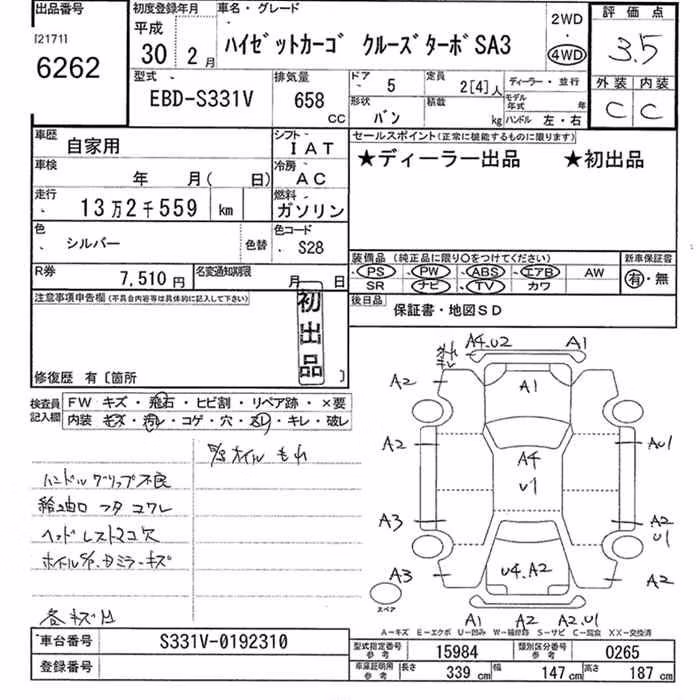 出品番号
[2171]
6262
初度登録年月
平成
30 年 2 月
車名・グレード
ハイゼットカーゴ クルーズターボSA3
2WD
・
4WD
評価点
3.5
外装 内装
C C
型式
EBD-S331V
排気量
658
CC
ドア 5
定員 2[4]人
ディーラー・並行
形状 バン
積載 kg
モデル年式 年
ハンドル 左・右
車歴 自家用
シフト IAT
車検 年 月( 日)
冷房 AC
走行 13万2千559 km
燃料 ガソリン
色 シルバー 色替
色コード S28
R券 7,510円
名変通知期限 月 日
セールスポイント(正常に機能するものに限ります)
★ディーラー出品 ★初出品
装備品 (純正品に限り○をつけてください)
PS PW ABS エアB AW
SR ナビ TV カワ
新車保証書
有・無
後日品 保証書・地図SD
注意事項申告欄(不具合内容等は具体的に記入して下さい)
初出品
修復歴 有〔箇所 〕
検査員記入欄
FW キズ・飛石・ヒビ割・リペア跡・×要
内装 キズ・汚レ・コゲ・穴・スレ・キレ・破レ
ホイル もれ
ハンドルグリップ不良
給油口 フタ コワレ
ヘッドレスト2コ欠
ミラーキズ
各キズ凹
キレ
A4.U2 A1
A2 A1
A2 AU1
A4
U1
A3 A2
U1
A3 U4.A2 A2
スペア
A1 A2 A2.U1
A-キズ E-エクボ U-凹み W-補修跡 S-サビ C-腐食 XX-交換済
車台番号 S331V-0192310
登録番号
型式指定番号 参考 15984
類別区分番号 参考 0265
車庫証明用 参考 長さ 339 cm 幅 147 cm 高さ 187 cm